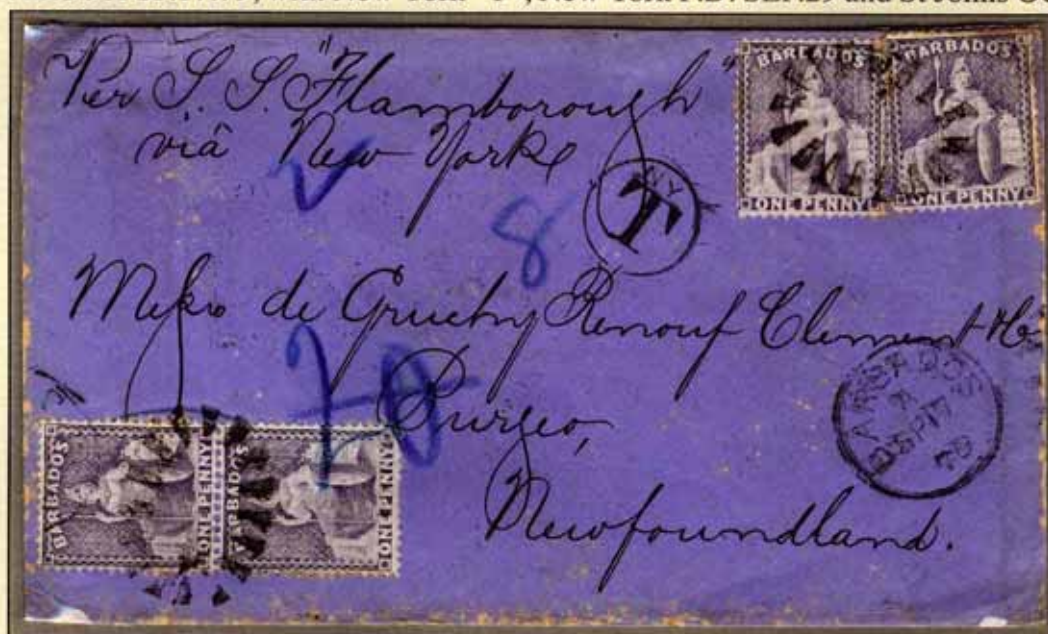 New York P.D. SEP.29 and St Johns
Per S. S. "Flamborough"
via New York
BARBADOS
ONE PENNY
BARBADOS
ONE PENNY
NY
T
8
Messrs de Gruchy Renouf Clement & Co
Burgeo,
Newfoundland.
BARBADOS
20
BARBADOS
ONE PENNY
BARBADOS
ONE PENNY